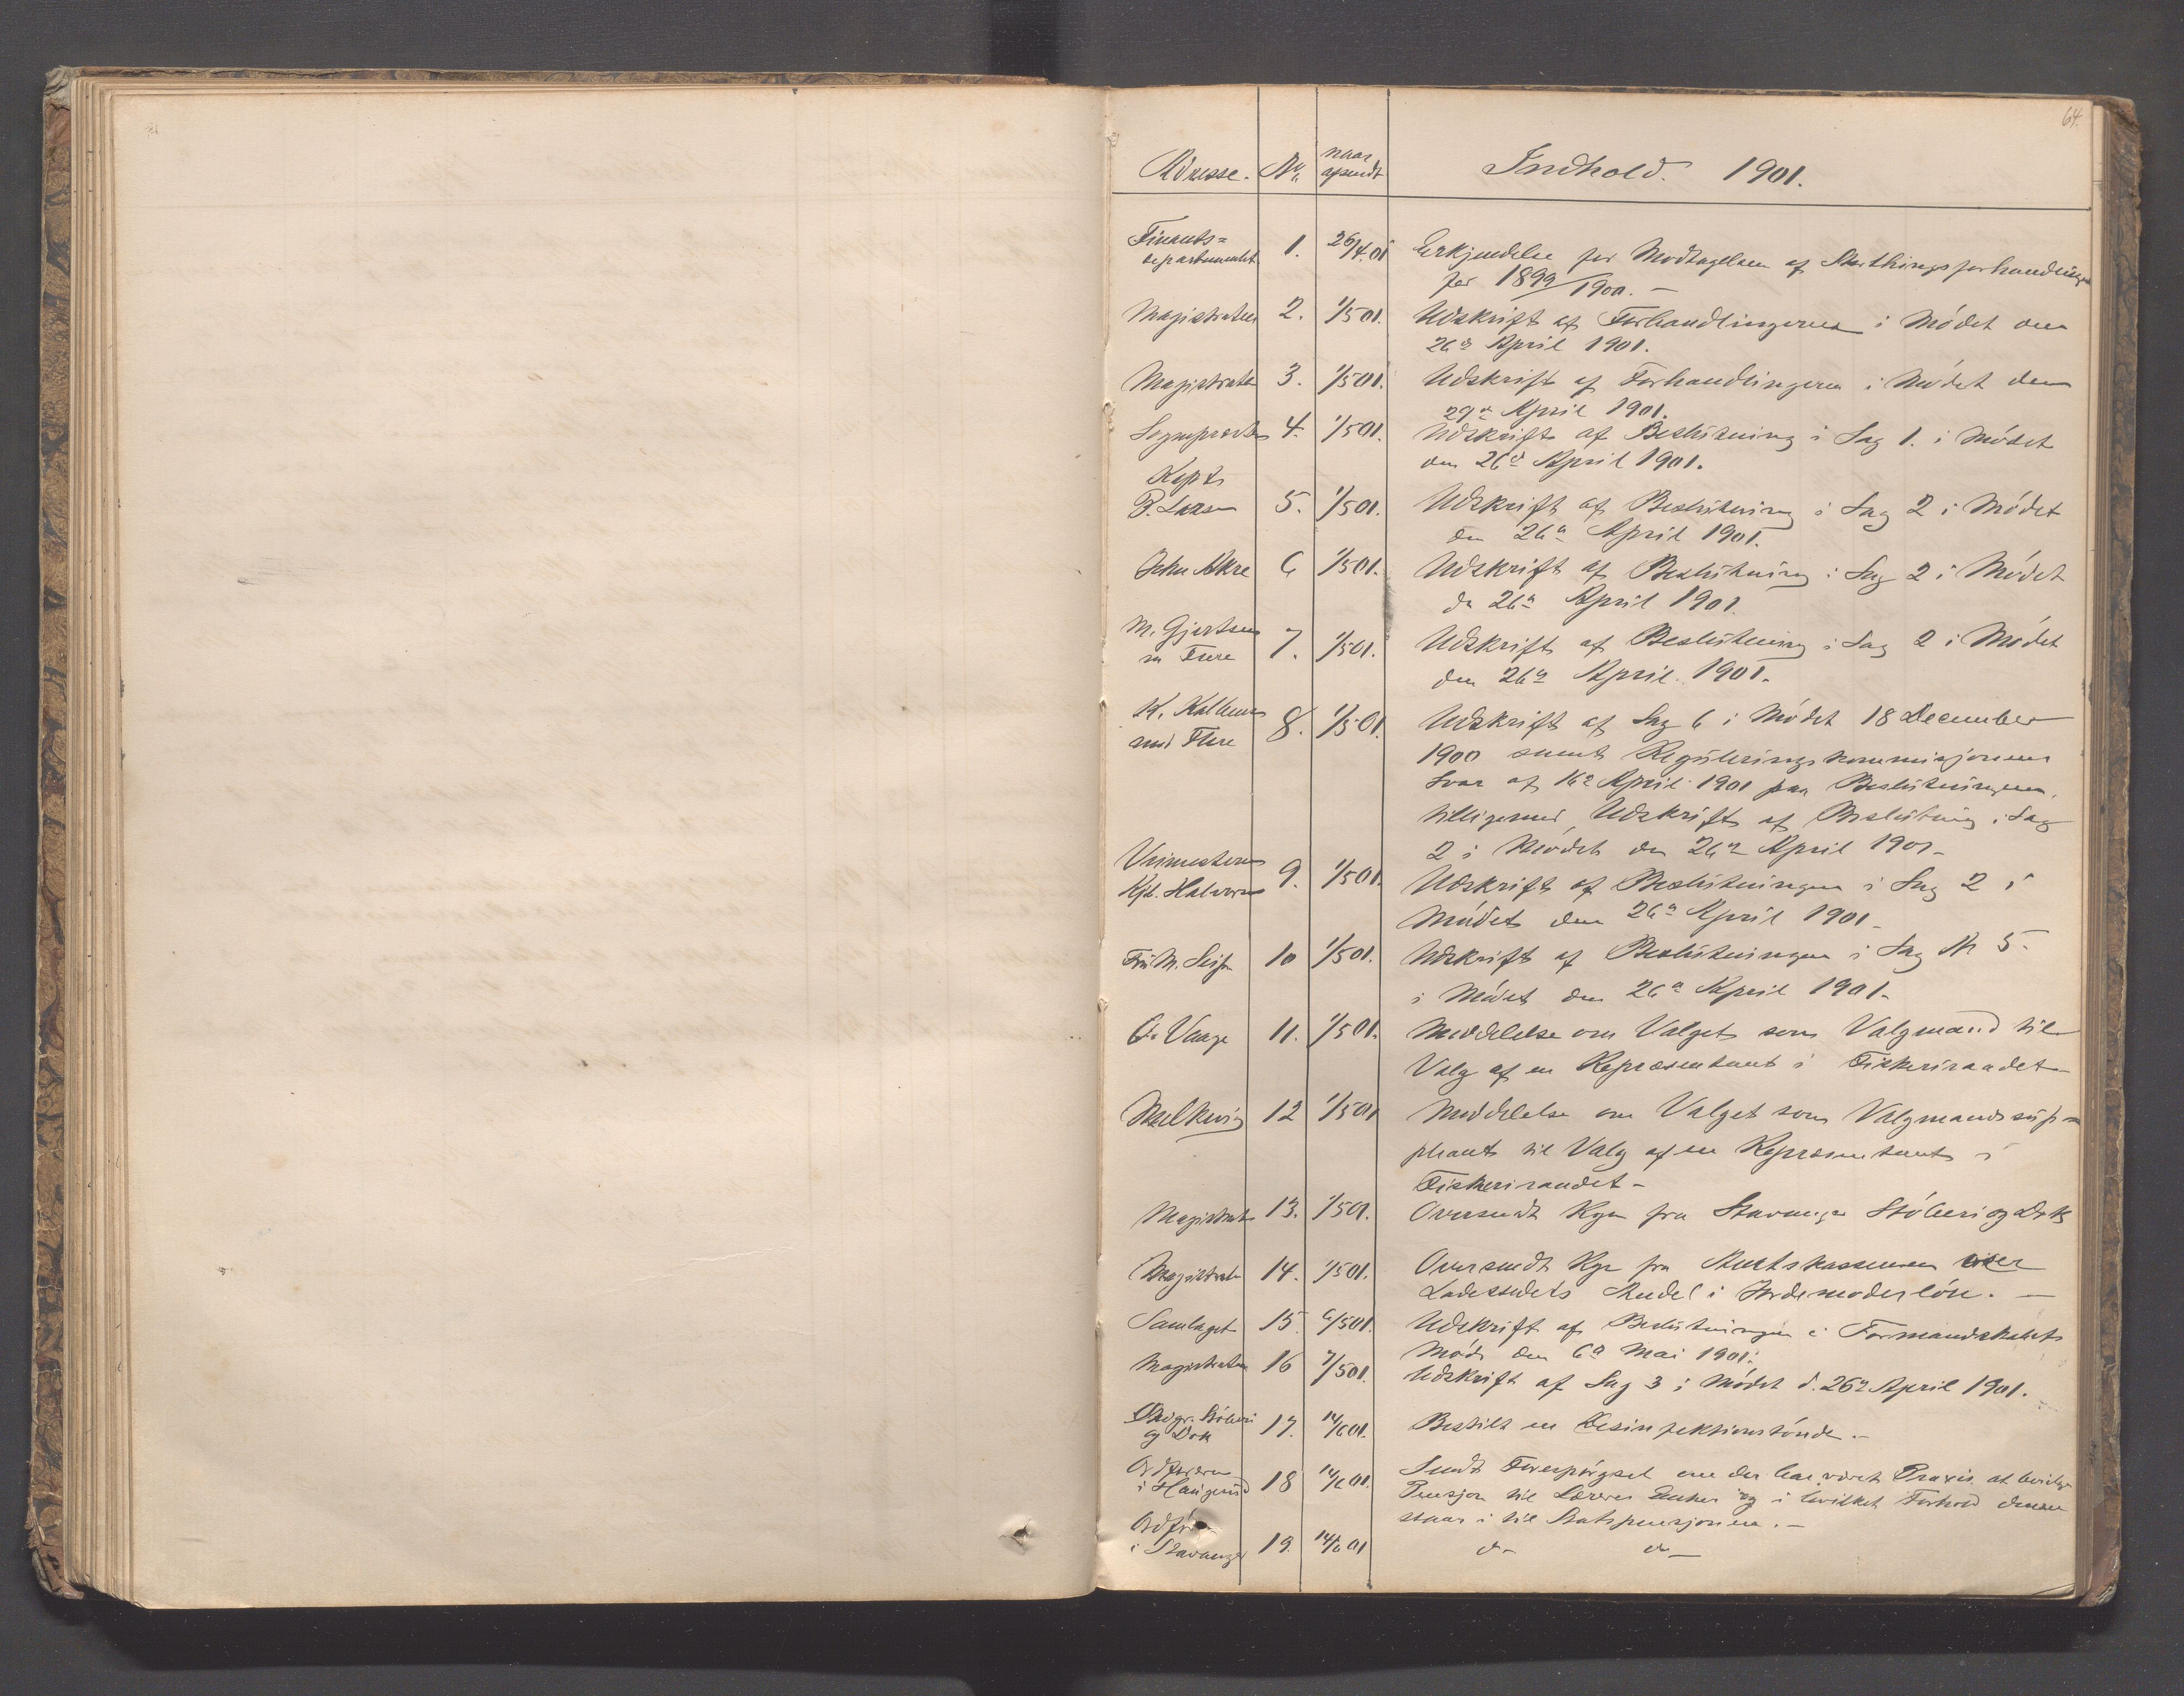 64.
Adresse. No. naar afsendt Indhold. 1901.
Finants= 1. 26/4.01 Erkjendelse for Modtagelsen af Storthingsforhandlinger
departementet for 1899/1900. —
Magistraten 2. 1/5 01. Udskrift af Forhandlingerne i Mödet den
26de April 1901.
Magistraten 3. 1/5 01. Udskrift af Forhandlingerne i Mödet den
29de April 1901.
Sognepræsten 4. 1/5 01. Udskrift af Beslutning i Sag 1. i Mödet
den 26de April 1901.
Kapt.
B. Larsen 5. 1/5 01. Udskrift af Beslutning i Sag 2 i Mödet
den 26de April 1901.
John Akre 6 1/5 01. Udskrift af Beslutning i Sag 2 i Mödet
de 26de April 1901.
M. Gjertsen 7. 1/5 01. Udskrift af Beslutning i Sag 2 i Mödet
m Flere den 26de April 1901.
K. 8. 1/5 01. Udskrift af Sag 6 i Mödet 18 December
med Flere 1900 samt Reguleringskommisjonens
Svar af 16de April 1901 paa Beslutningen,
tilligemed Udskrift af Beslutning i Sag
2 i Mödet den 26de April 1901 -
Kpt. Halvorsen 9. 1/5 01. Udskrift af Beslutningen i Sag 2 i
Mödet den 26de April 1901 -
Fru M. 10 1/5 01. Udskrift af Beslutningen i Sag No 5.
i Mödet den 26de April 1901 -
O. Vaage 11. 1/5 01. Meddelelse om Valget som Valgmand til
Valg af en Repræsentant i Fiskeriraadet -
12 1/5 01 Meddelelse om Valget som Valgmandssup-
pleant til Valg af en Repræsentant i
Fiskeriraadet -
Magistraten 13. 1/5 01. Oversendt Rgn fra Stavanger Stöberi og Dok
Magistraten 14. 1/5 01. Oversendt Rgn fra Amtskassereren over
Ladestedets Andel i Jordemoderlön. —
Samlaget 15. 6/5 01. Udskrift af Beslutningen i Formandskabets
Möde den 6de Mai 1901.
Magistraten 16 7/5 01. Udskrift af Sag 3 i Mödet d. 26de April 1901.
Stvgr. Stöberi 17. 14/6 01. Bestilt en Desinfektionstönde. -
og Dok
Ordföreren 18 14/6 01. Sendt Forespörgsel om der har været Praxis at bevilge
i Haugesund Pensjon til Lærerens Enker og i hvilket Forhold denne
staar i til Statspensjonen. —
Ordföreren
i Stavanger 19. 14/6 01 do - do —